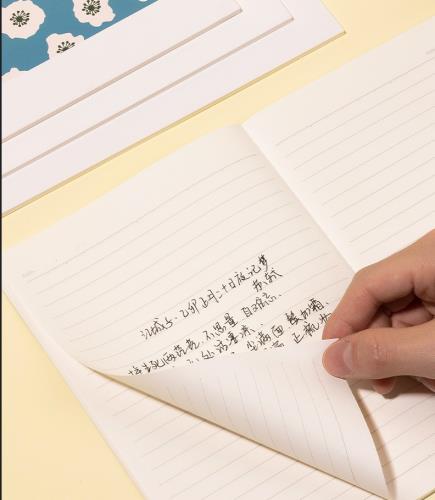 江城子·乙卯正月二十日夜记梦
苏轼
十年生死两茫茫,不思量,自难忘.
处话凄凉.
尘满面 鬓如霜.
正梳妆